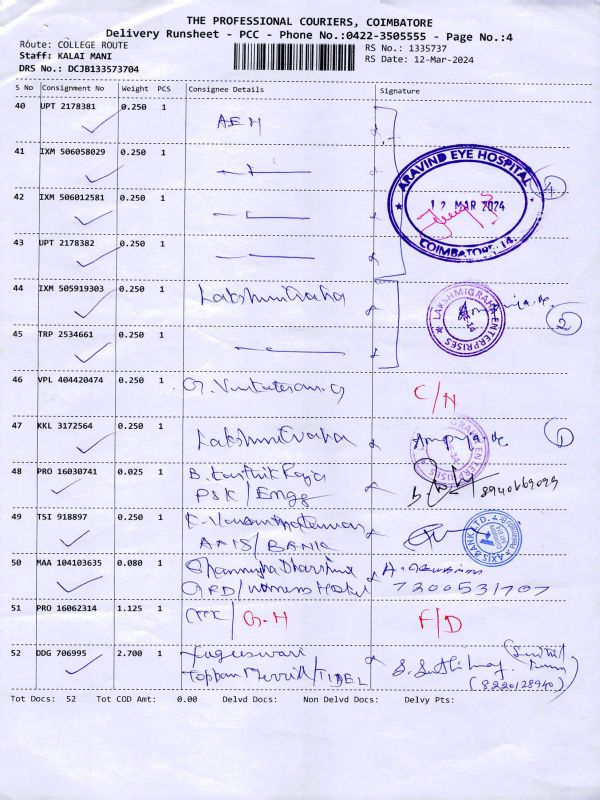 THE PROFESSIONAL COURIERS, COIMBATORE
Delivery Runsheet - PCC - Phone No.:0422-3505555 - Page No.:4
Route: COLLEGE ROUTE
RS No.: 1335737
Staff: KALAI MANI
RS Date: 12-Mar-2024
DRS No.: DCJB133573704
S No Consignment No Weight PCS Consignee Details Signature
40 UPT 2178381 0.250 1 AEH
41 IXM 506058029 0.250 1
42 IXM 506012581 0.250 1
43 UPT 2178382 0.250 1
ARAVIND EYE HOSPITAL
12 MAR 2024
COIMBATORE-14.
4
44 IXM 505919303 0.250 1 LakshmiGraha
LAKSHMIGRAHA ENTERPRISES
2
45 TRP 2534661 0.250 1
46 VPL 404420474 0.250 1 C/N
47 KKL 3172564 0.250 1 LakshmiGraha
1
48 PRO 16030741 0.025 1 B. Karthik Raja
PSK/Engg
49 TSI 918897 0.250 1
AXIS/BANK
AXIS BANK LTD.
50 MAA 104103635 0.080 1
GRD/womens Hostel 7200531707
51 PRO 16062314 1.125 1 G.H F/D
52 DDG 706995 2.700 1 Yogeeswari
Toppan Merrill/TIDEL
(8220128940)
Tot Docs: 52 Tot COD Amt: 0.00 Delvd Docs: Non Delvd Docs: Delvy Pts: